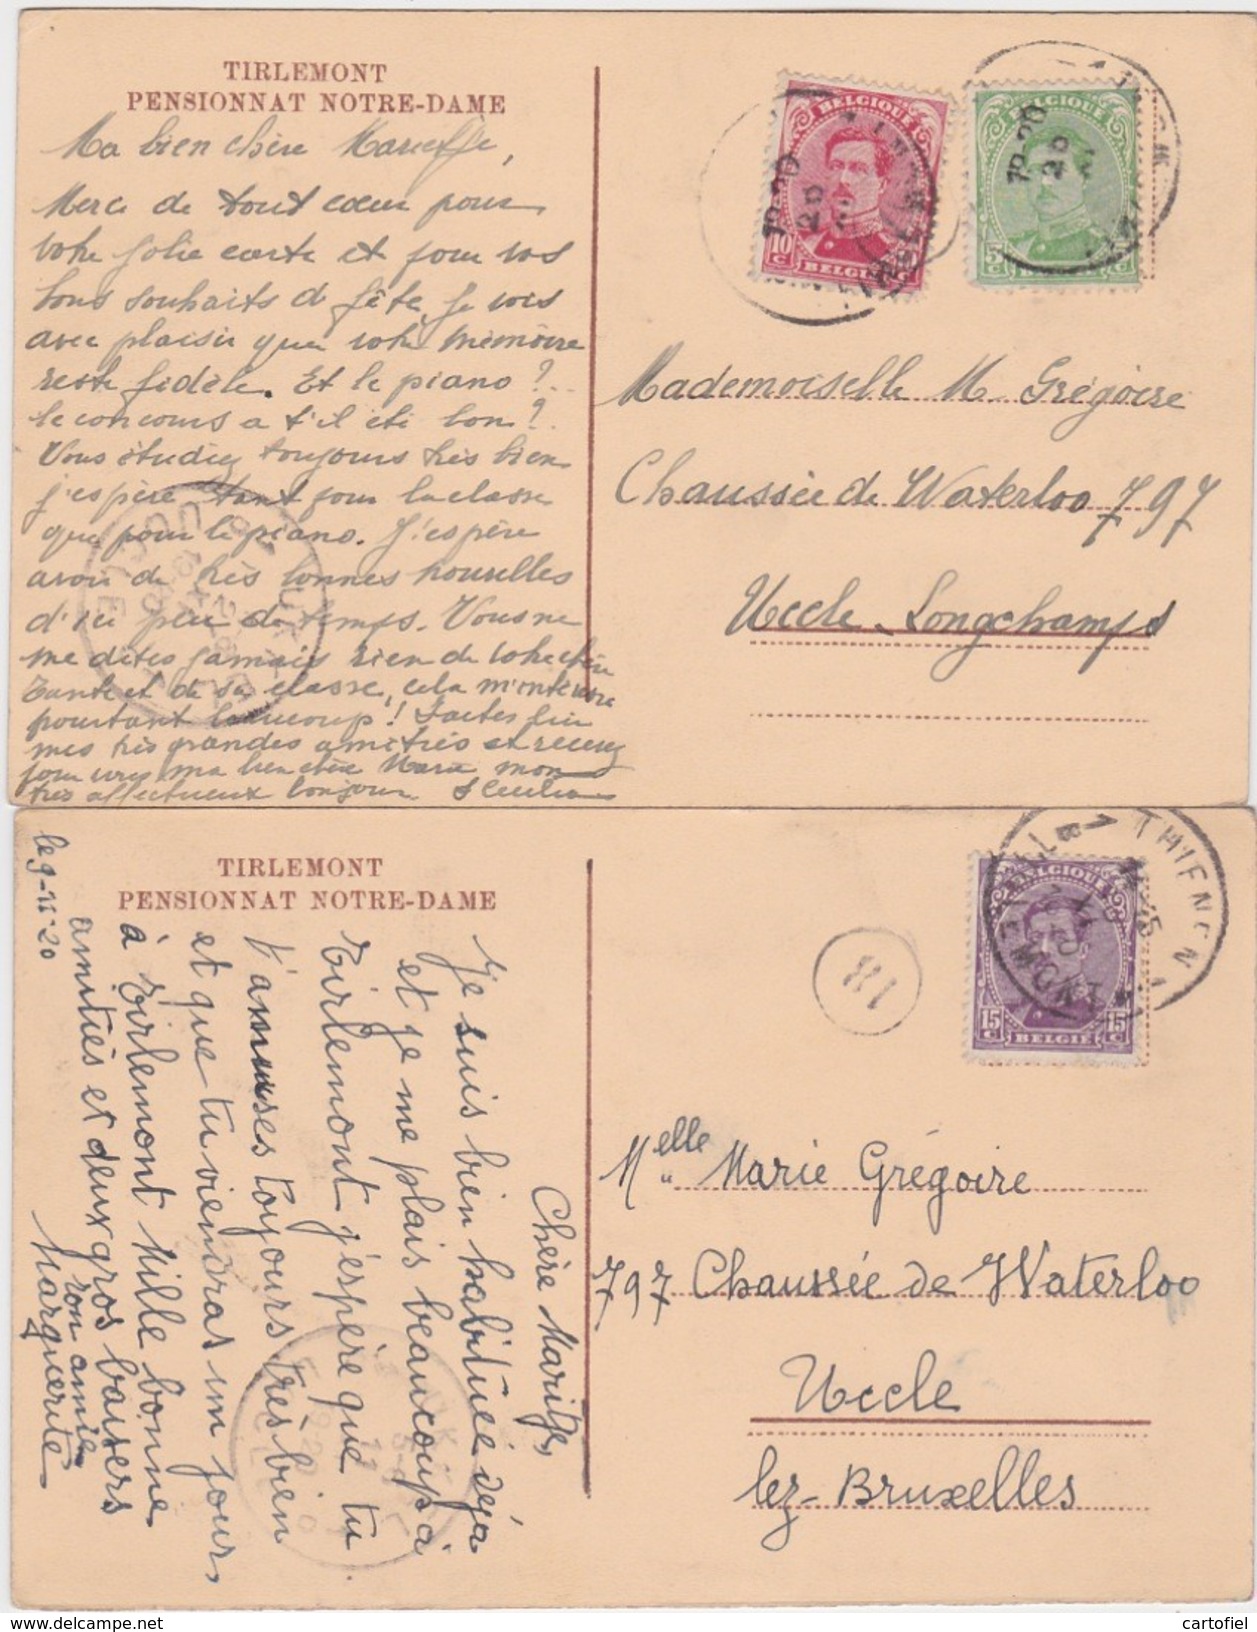 TIRLEMONT
PENSIONNAT NOTRE-DAME
Ma bien chère
Merci de tout cœur pour
votre jolie carte et pour vos
bons souhaits de fête. Je vois
avec plaisir que votre mémoire
reste fidèle. Et le piano ?..
le concours a t'il été bon ?
Vous étudiez toujours très bien
j'espère tant pour la classe
que pour le piano. J'espère
avoir de très bonnes nouvelles
d'ici peu de temps. Vous ne
me dites jamais rien de votre chère
Tante et de sa classe, cela m'intéresse
pourtant beaucoup! Faites lui
mes très grandes amitiés et recevez
pour vous ma bien chère Marie mon
très affectueux bonjour.
BELGIQUE
10 C
BELGIË
BELGIQUE
5 C
Mademoiselle M. Grégoire
Chaussée de Waterloo 797
Uccle-Longchamps
TIRLEMONT
PENSIONNAT NOTRE-DAME
le 9-11-20
Chère
Je suis bien habituée déjà
et je me plais beaucoup à
Tirlemont j'espère que tu
t'amuses toujours très bien
et que tu viendras un jour,
à Tirlemont Mille bonne
amitiés et deux gros baisers
ton amie
Marguerite
BELGIQUE
15 C
15 C
BELGIË
THIENEN
TIRLEMONT
181
Melle Marie Grégoire
797 Chaussée de Waterloo
Uccle
lez-Bruxelles
www.delcampe.net
cartofiel